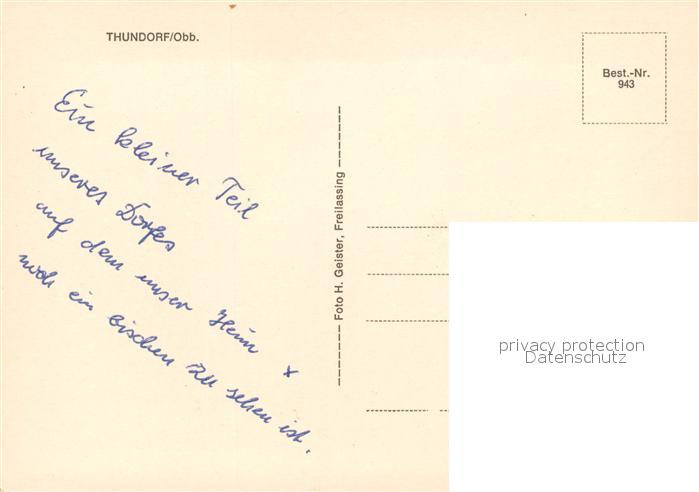 THUNDORF/Obb.
Best.-Nr.
943
Ein kleiner Teil
unseres Dorfes
auf dem unser Heim x
noch ein bischen zu sehen ist.
Foto H. Geister, Freilassing
privacy protection
Datenschutz